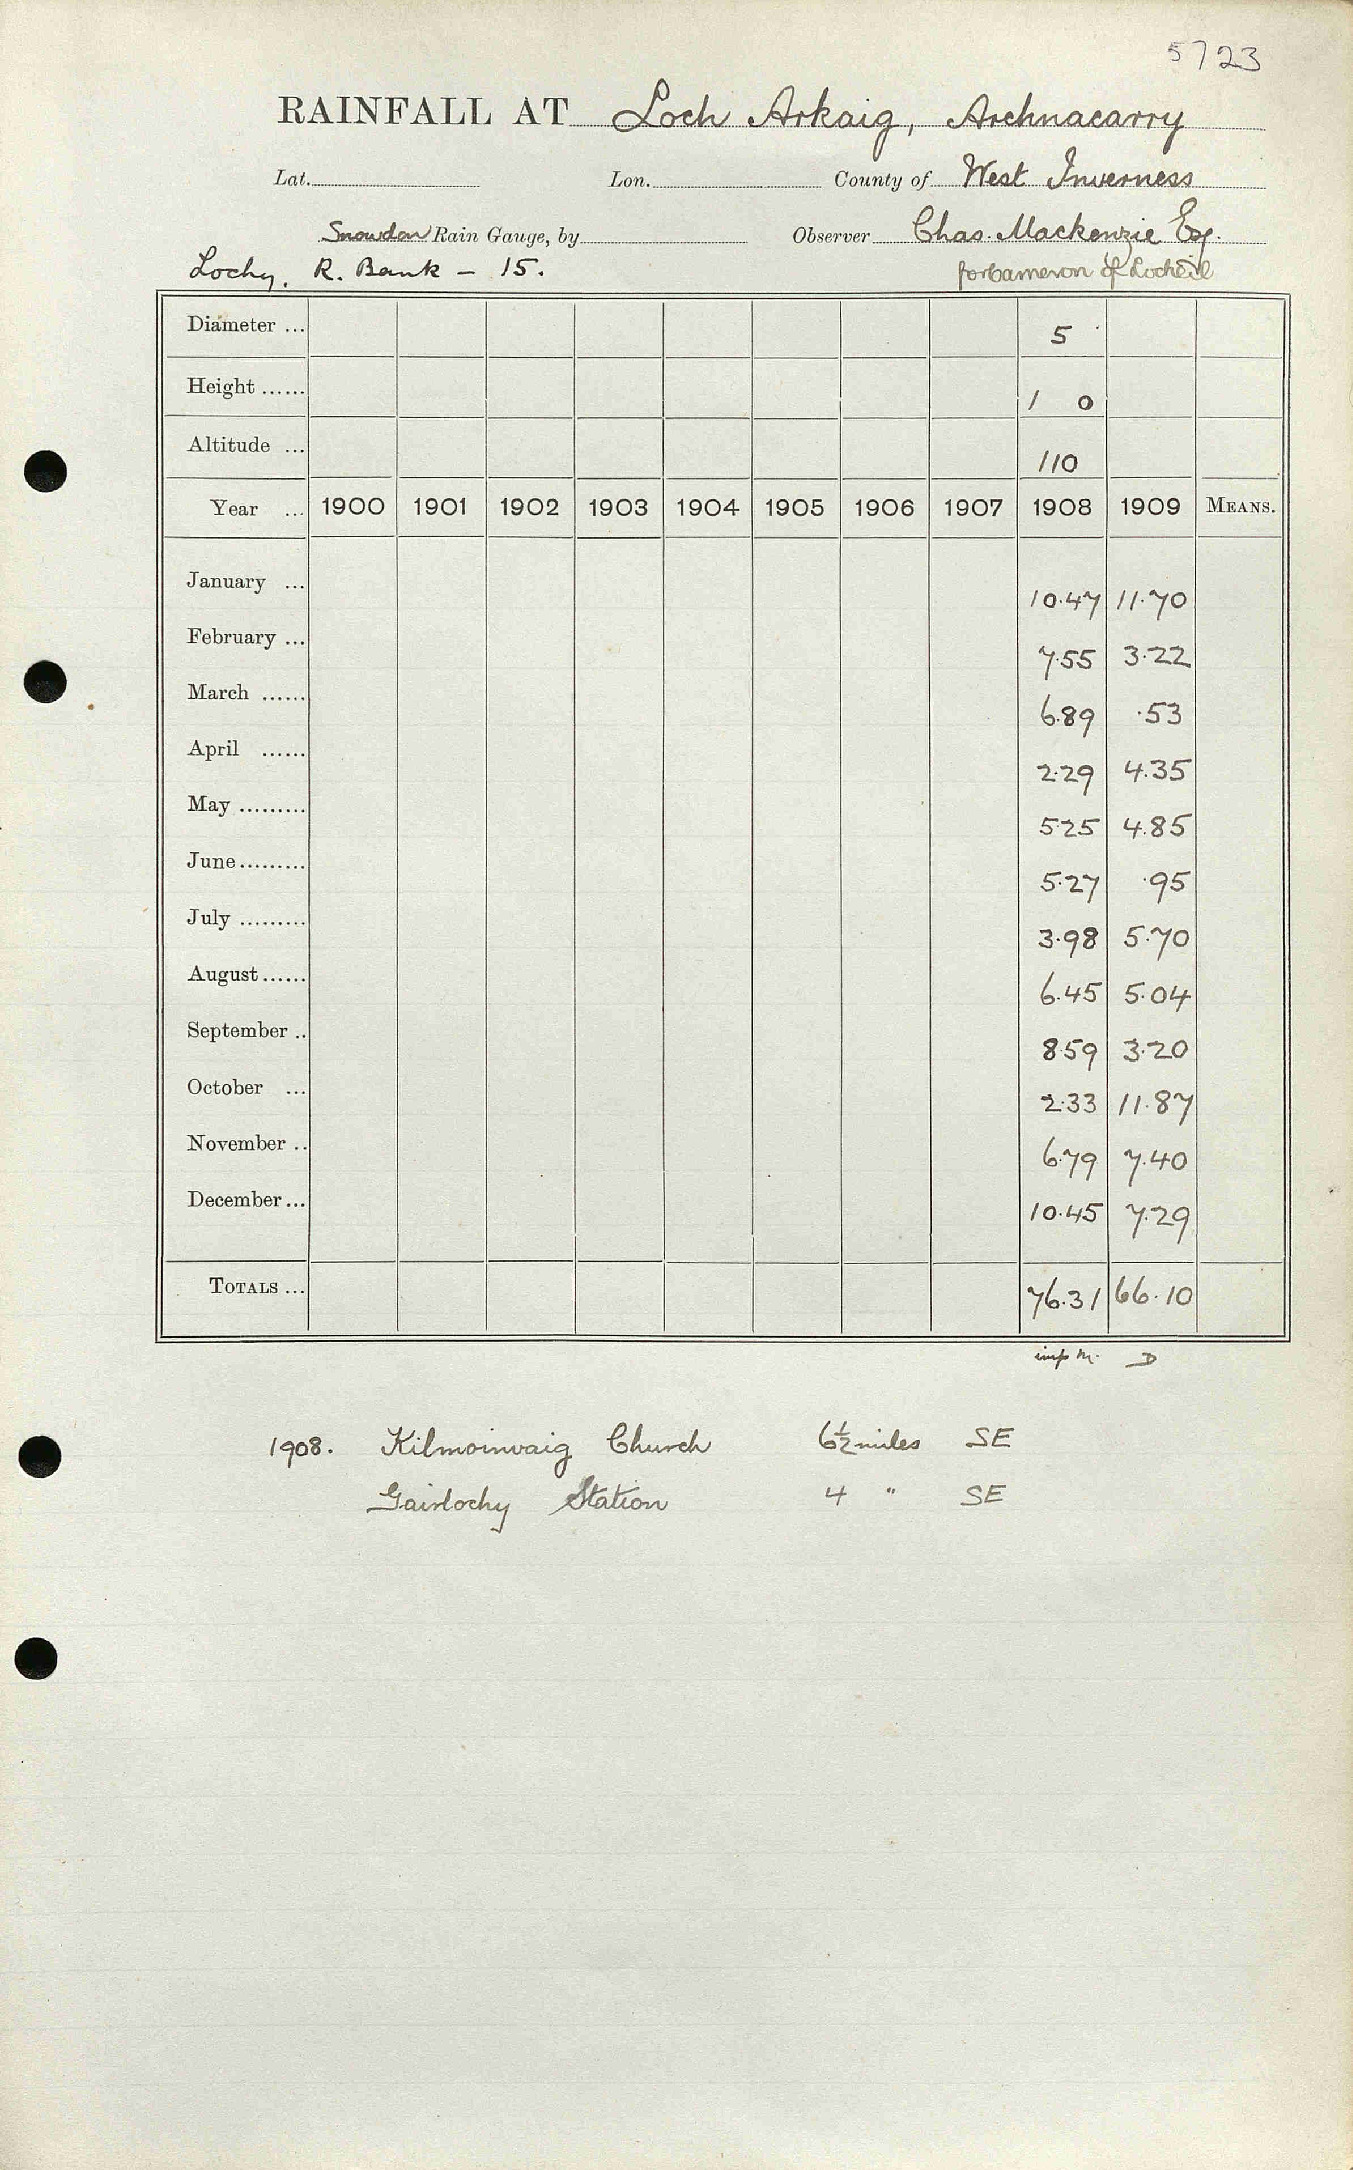 5723
RAINFALL AT Loch Arkaig, Archnacarry
Lat. Lon. County of West Inverness
Snowdon Rain Gauge, by Observer Chas. Mackenzie Esq.
Lochy. R. Bank – 15. for Cameron of Locheil
Diameter ... 5
Height ...... 1 0
Altitude ... 110
Year ... 1900 1901 1902 1903 1904 1905 1906 1907 1908 1909 MEANS.
January ... 10.47 11.70
February ... 7.55 3.22
March ...... 6.89 .53
April ...... 2.29 4.35
May ......... 5.25 4.85
June......... 5.27 .95
July ......... 3.98 5.70
August...... 6.45 5.04
September .. 8.59 3.20
October ... 2.33 11.87
November .. 6.79 7.40
December... 10.45 7.29
TOTALS ... 76.31 66.10
imp M. D
1908. Kilmoinvaig Church 6½ miles SE
Gairlochy Station 4 " SE